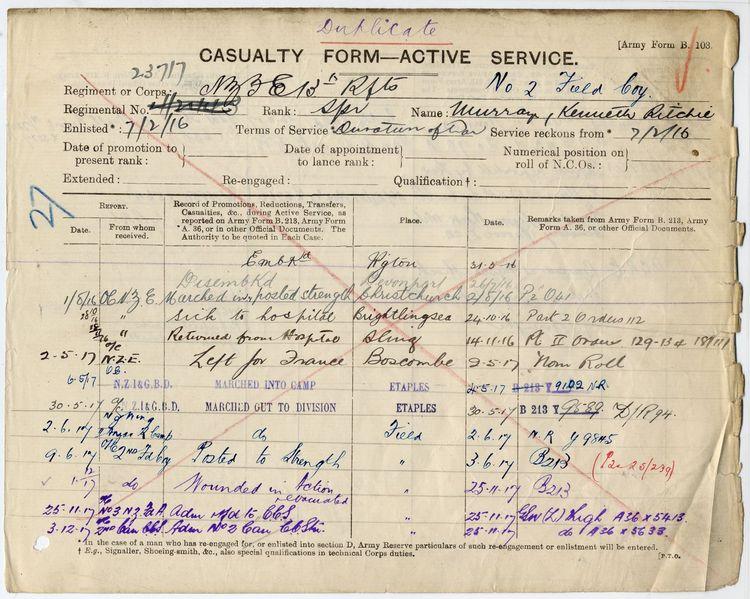 Duplicate
[Army Form B. 103.
CASUALTY FORM—ACTIVE SERVICE.
23717
Regiment or Corps: NZE 13th Rfts No 2 Field Coy.
Regimental No. Rank: Spr Name: Murray, Kenneth Ritchie
Enlisted*: 7/2/16 Terms of Service: Duration of War Service reckons from* 7/2/16
Date of promotion to present rank: Date of appointment to lance rank: Numerical position on roll of N.C.Os.:
Extended: Re-engaged: Qualification†:
27
REPORT. Record of Promotions, Reductions, Transfers, Casualties, &c., during Active Service, as reported on Army Form B. 213, Army Form A. 36, or in other Official Documents. The Authority to be quoted in Each Case. Place. Date. Remarks taken from Army Form B. 213, Army Form A. 36, or in other Official Documents.
Date. From whom received.
Embkd Wgton 31-5-16
Disembkd Devonport 26/7/16
1/8/16 OC N.Z.E. Marched in & posted strength Christchurch 2/8/16 P2 O41
" Sick to hospital Brightlingsea 24-10-16 Part 2 Orders 112
" Returned from Hospital Sling 14-11-16 Pt II Orders 129-13 &
2-5-17 N.Z.E. Left for France Boscombe 2-5-17 Nom Roll
6-5/17 N.Z.I&G.B.D. MARCHED INTO CAMP ETAPLES 4-5-17 B 213 9102 N.R.
30-5-17 N.Z.I&G.B.D. MARCHED OUT TO DIVISION ETAPLES 30.5.17 B 213 D/R 94.
2-6-17 do Field 2.6.17 N.R
9-6-17 2nd Fd Coy Posted to Strength " 3.6.17 B213
1-17 do Wounded in Action " 25-11-17 B213
evacuated
25-11-17 No 3 NZ FA Adm & tfd to CCS " 25-11-17 A36 x 5413
3-12-17 2nd Can CCS Adm No 2 Can CC Stn " 25-11-17 do A36 x 5633.
* In the case of a man who has re-engaged for, or enlisted into section D, Army Reserve particulars of such re-engagement or enlistment will be entered.
† E.g., Signaller, Shoeing-smith, &c., also special qualifications in technical Corps duties.
[P.T.O.